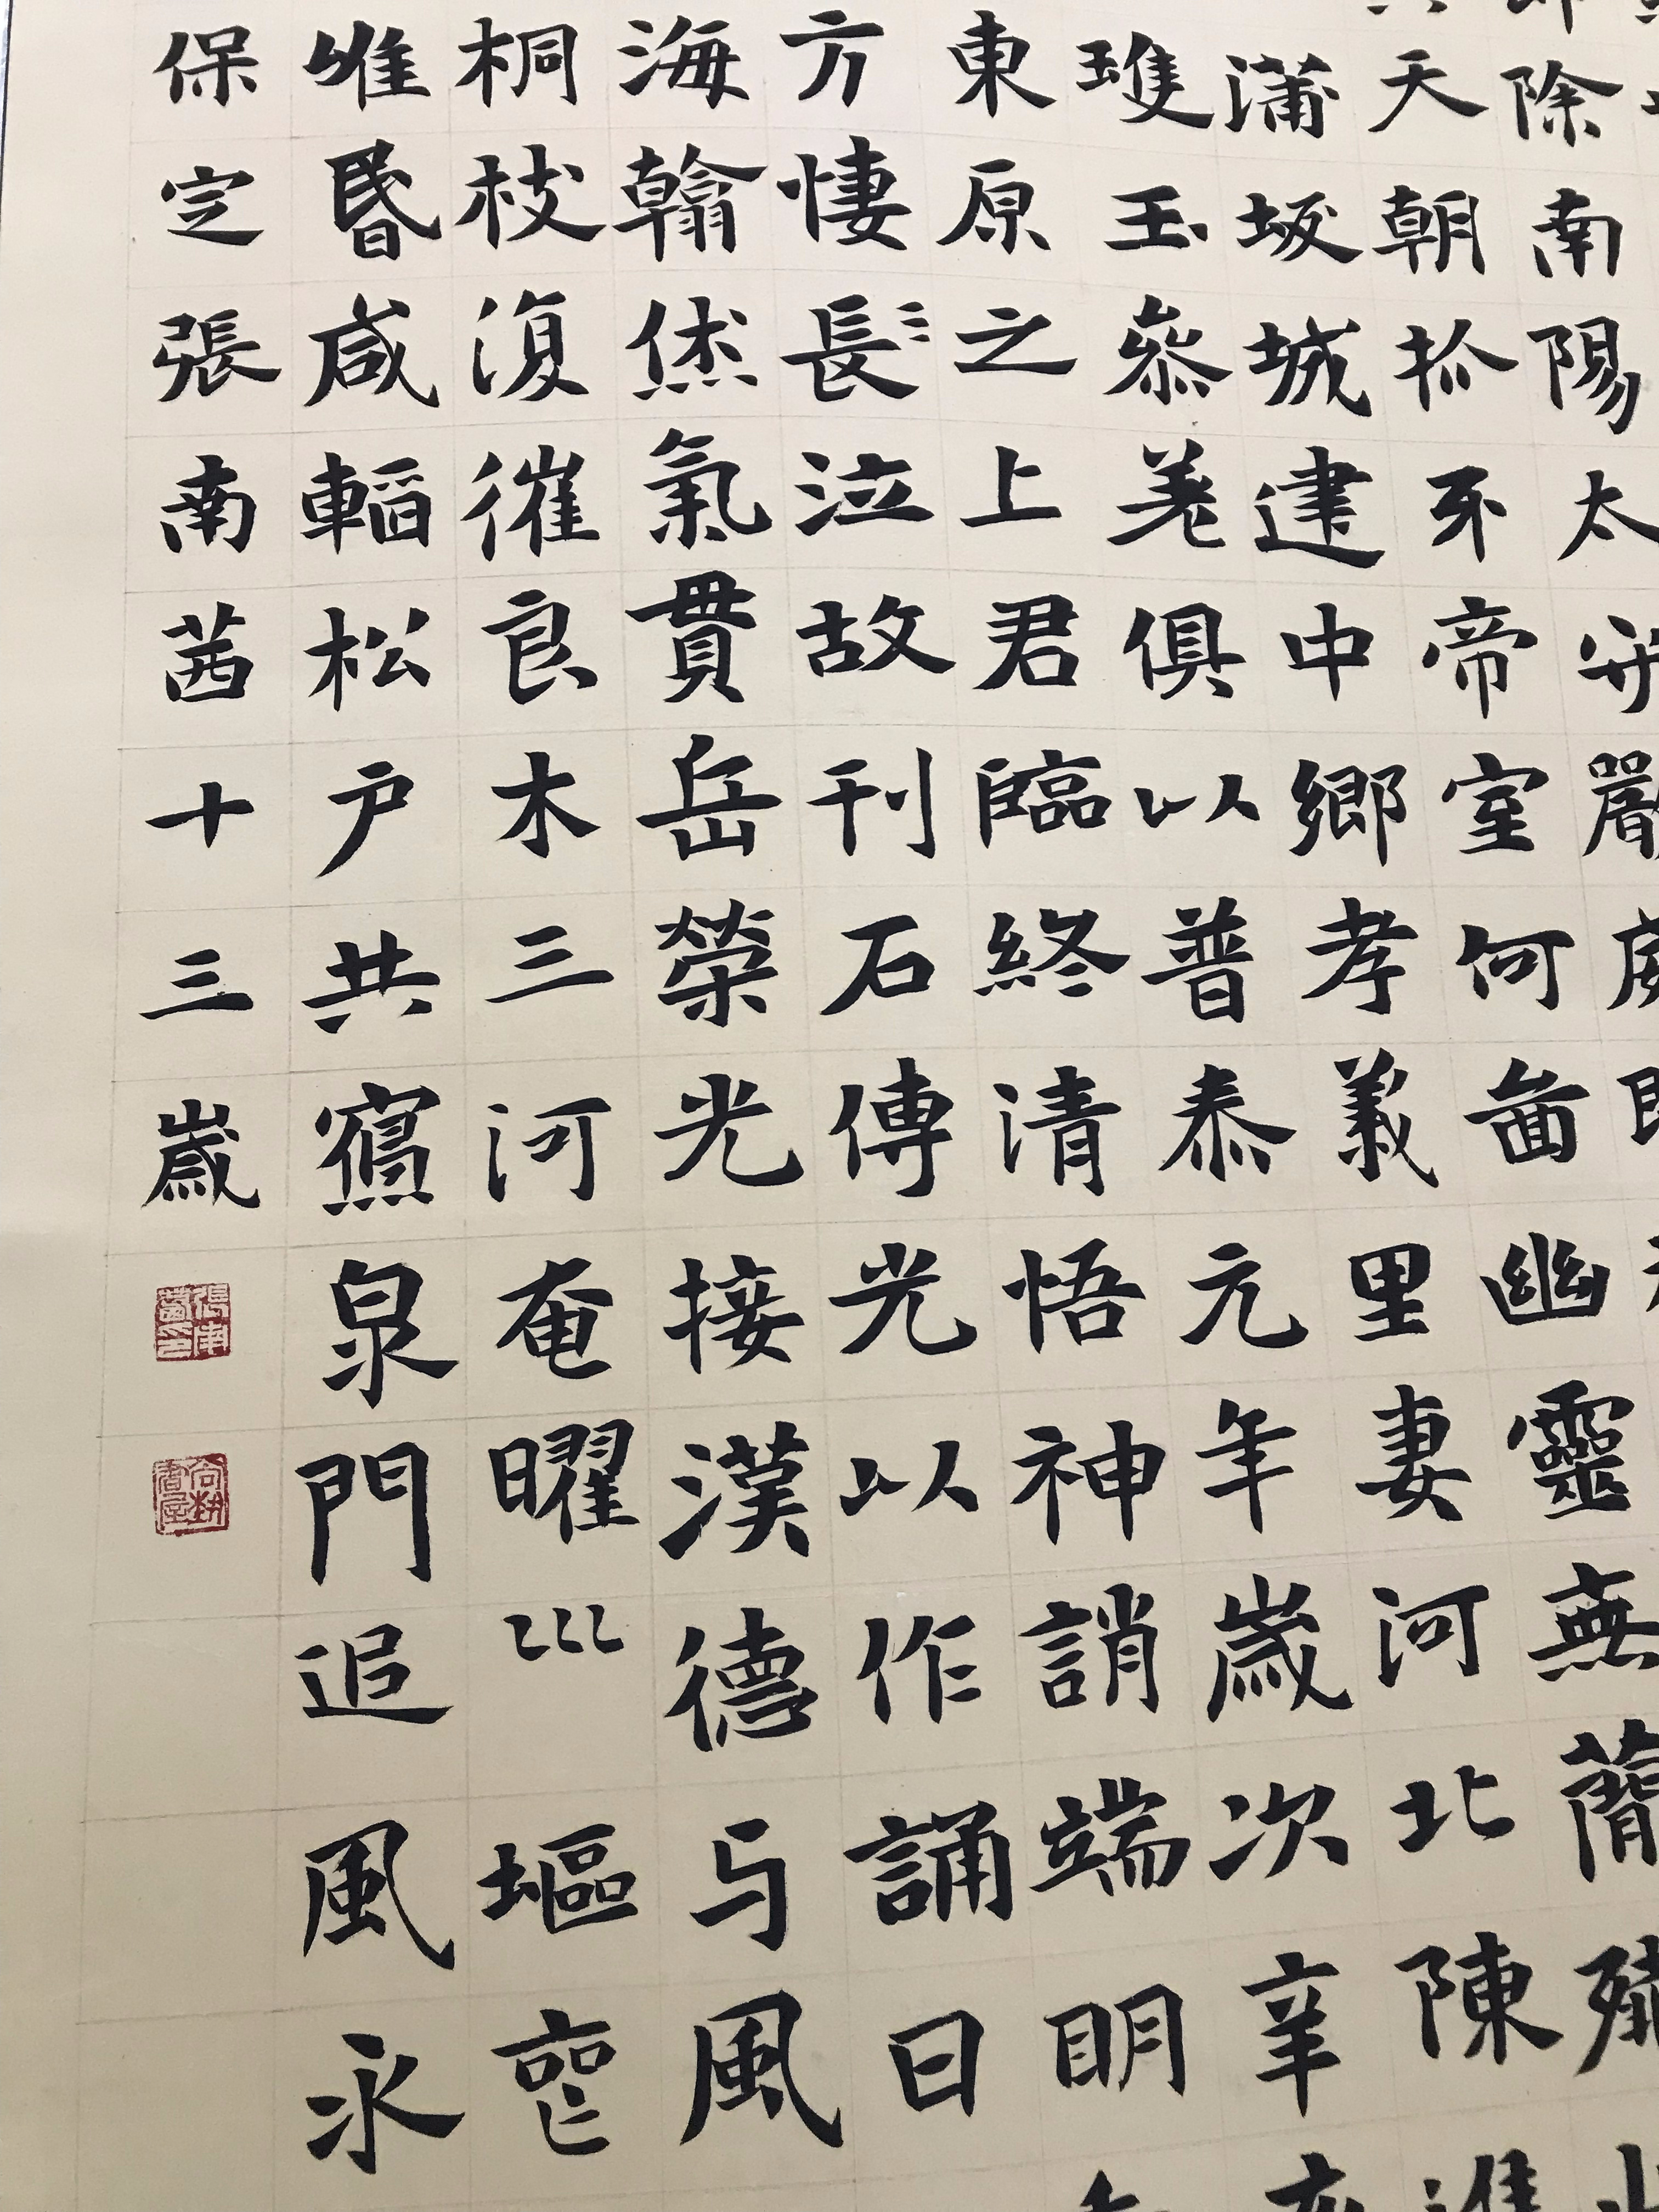 除南陽太守嚴
天朝於不帝室何啚幽靈無簡
蒲坂城建中鄉孝義里妻河北陳
玉參差俱以普泰元年歲次辛
東原之上君臨終清悟神誚端明
方悽長泣故刊石傳光以作誦曰
海翰烋氣貫岳榮光接漢德与風
桐枝復摧良木三河奄曜巛塸
唯昏咸韜松户共寫泉門追風永
保定張南茜十三歲
張南茜印